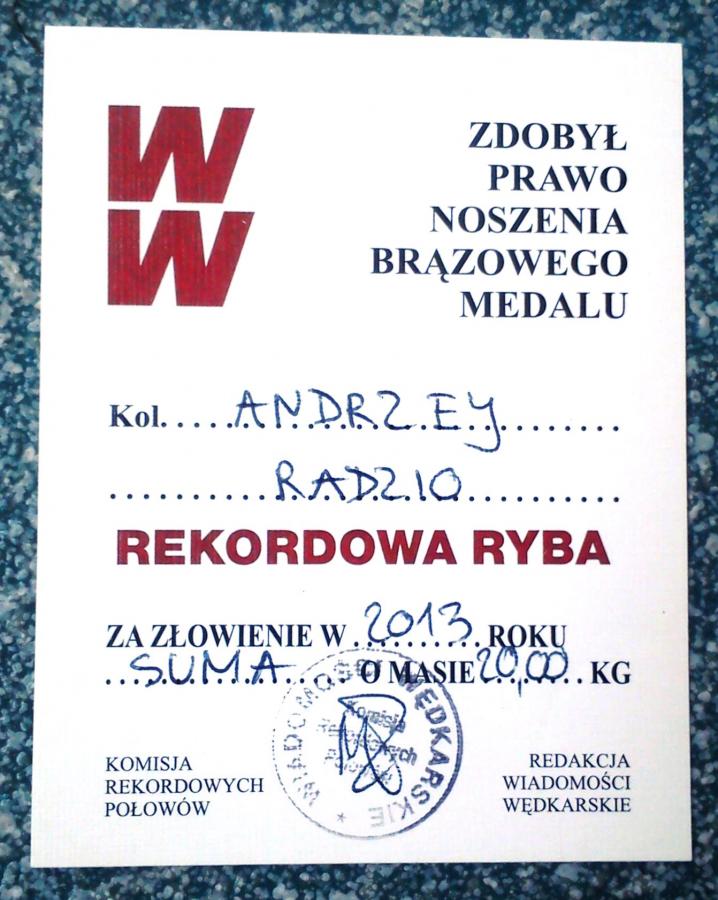 W
W
ZDOBYŁ
PRAWO
NOSZENIA
BRĄZOWEGO
MEDALU
Kol. ANDRZEY
RADZIO
REKORDOWA RYBA
ZA ZŁOWIENIE W 2013 ROKU
SUMA O MASIE 20,00 KG
WIADOMOŚCI WĘDKARSKIE *
Komisja
KOMISJA
REKORDOWYCH
POŁOWÓW
REDAKCJA
WIADOMOŚCI
WĘDKARSKIE